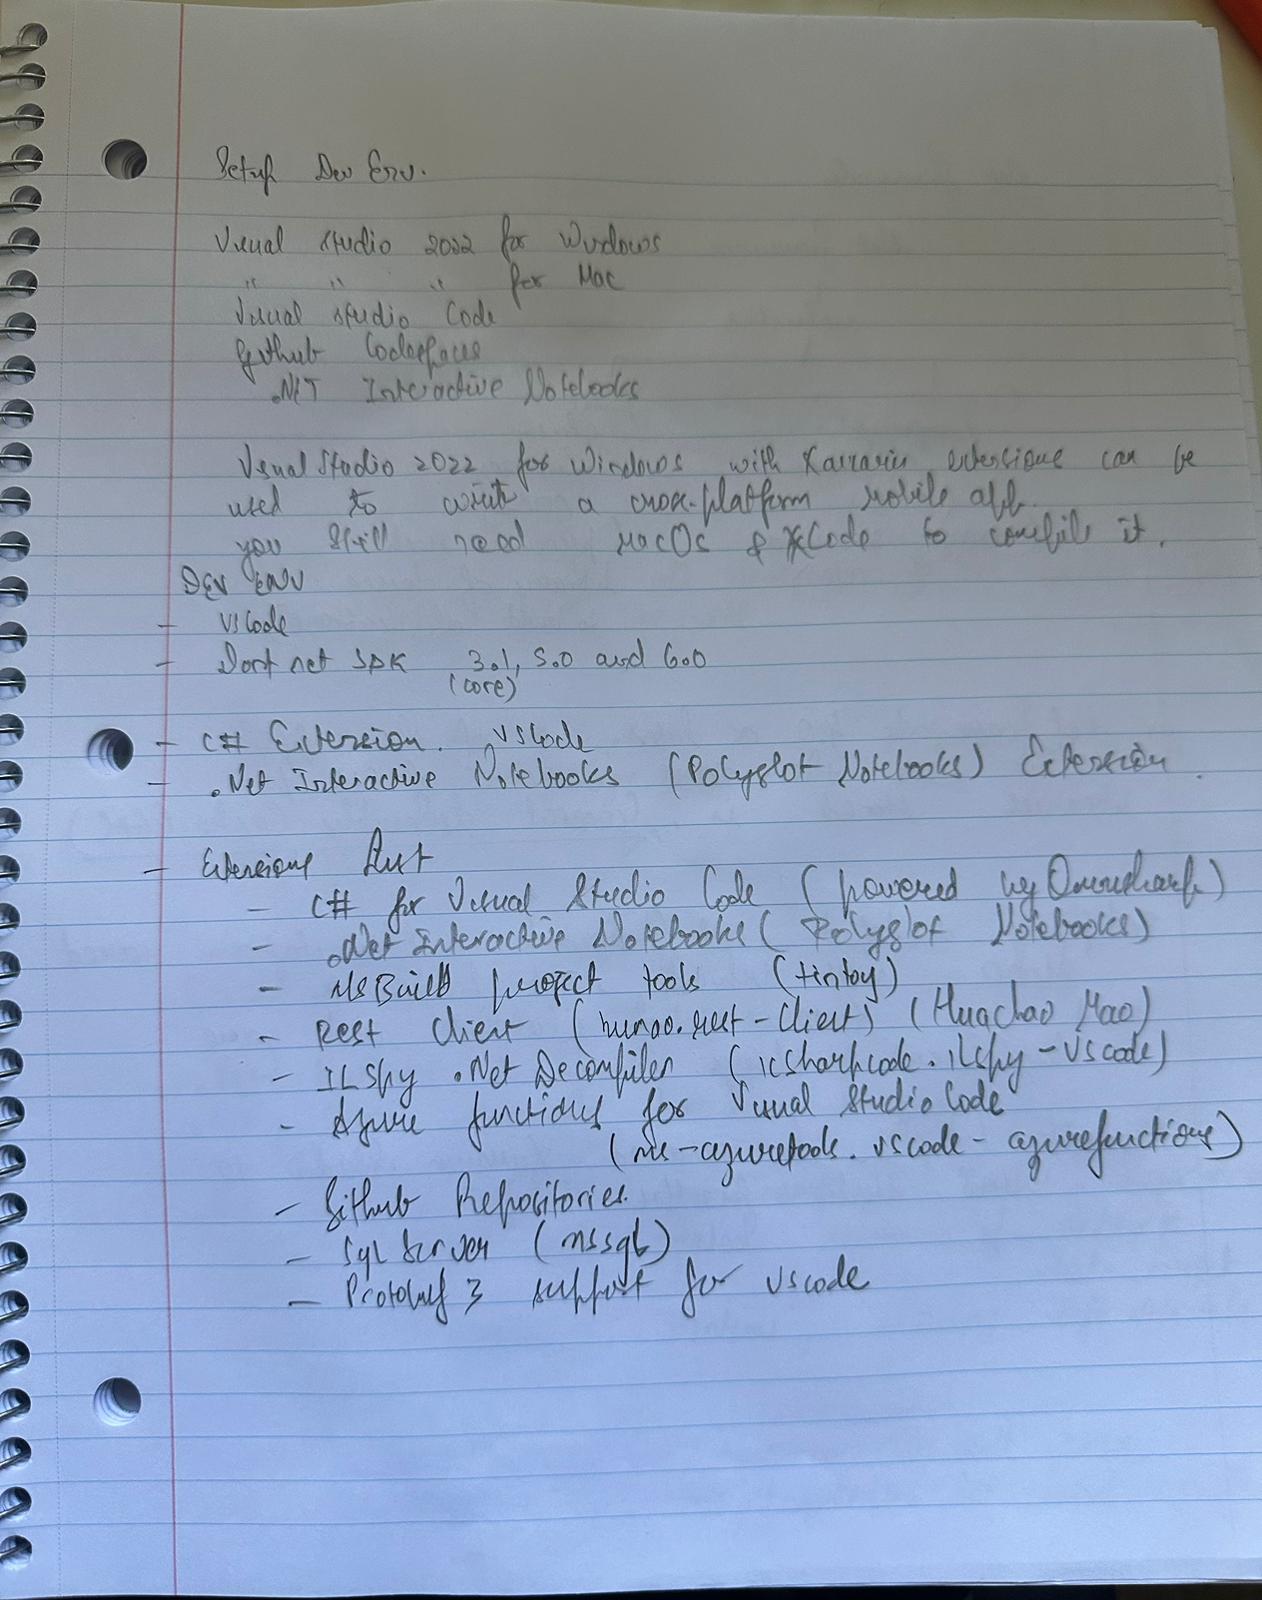 Setup Dev Env.
Visual Studio 2022 for Windows
" " " for Mac
Visual Studio Code
Github Codespaces
.NET Interactive Notebooks
Visual Studio 2022 for Windows with Xamarin extensions can be
used to write a cross-platform mobile app.
you still need MacOs & XCode to compile it.
DEV ENV
- VSCode
- Dont net SDK 3.1, 5.0 and 6.0
(core)
- C# Extension. VSCode
- .Net Interactive Notebooks (Polyglot Notebooks) Extension.
- Extensions List
- C# for Visual Studio Code (powered by Omnisharp)
- .Net Interactive Notebooks (Polyglot Notebooks)
- MSBuild project tools (tintoy)
- Rest Client (humao.rest-client) (Huachao Mao)
- ILSpy .Net Decompiler (icsharpcode.ilspy-vscode)
- Azure functions for Visual Studio Code
(ms-azuretools.vscode-azurefunctions)
- Github Repositories.
- Sql Server (mssql)
- Protobuf 3 support for vscode